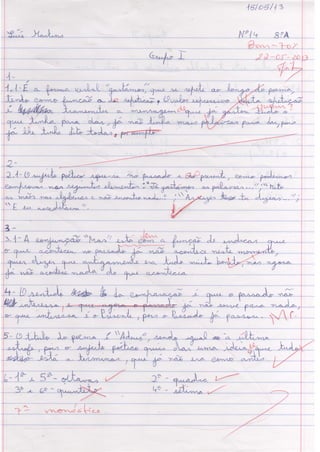 15/05/13
Luís Martins Nº14 8ºA
Bom - 70%
22-05-2013
Grupo I
1-
1.1- É a forma verbal "gastámos", que se repete ao longo do poema,
tendo como função a de repetição. O valor expressivo desta repetição
é transmitir a mensagem que já gastou tudo o
que tinha para dar, já não tinha mais palavras para dar, pois
já lhe tinha dito todas,
2-
2.1- O sujeito poético opõe-se no passado e no presente, como podemos
comprovar nos seguintes elementos: "Já gastámos as palavras..." "Meto
as mãos nas algibeiras e não encontro nada." "Às vezes tu dizias...";
"E eu acreditava".
3-
3.1- A conjunção "Mas" está com a função de indicar que
tem
o que aconteceu no passado já não acontece neste momento,
quer dizer que antigamente era tudo muito bonito, mas agora
já não acontece nada do que acontecia
4- O sentido da comparação é que o passado não
interessa, já não serve para nada,
o que interessa é o presente, pois o passado já passou.
5- O título do poema é "Adeus", sendo igual à última
estrofe, pois o sujeito poético quis dar uma ideia que tudo
está a terminar, que já não era como antes.
6- 1ª e 5ª - oitavas 2ª - quadra
3ª e 6ª - quintilha 4ª - sétima
7ª monóstico